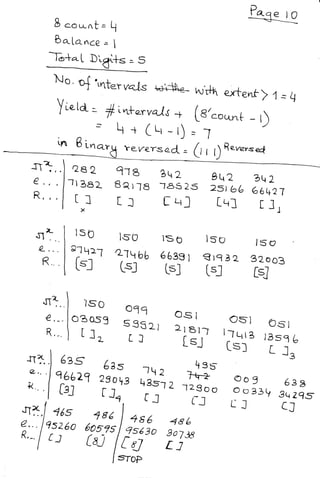 Page 10
8 count = 4
Balance = 1
Total Digits = 5
No. of intervals with extent > 1 = 4
Yield = # intervals + (8' count - 1)
= 4 + (4-1) = 7
in Binary reversed = (111) Reversed
π^2... 282 978 342 842 342
e... 71382 82178 78525 25166 66427
R... [ ] [ ] [4] [4] [ ]1
x
π^2... 150 150 150 150 150
e... 27427 27466 66391 91932 32003
R... [5] [5] [5] [5] [5]
π^2... 150 099 051 051 051
e... 03059 59921 21817 17413 13596
R... [ ]2 [ ] [5] [5] [ ]3
π^2... 635 635 742 495 009 638
e... 96629 29043 43572 72900 00334 34295
R... [3] [ ]4 [ ] [ ] [ ] [ ]
π^2... 465 486 486 486
e... 95260 60595 95630 30738
R... [ ] [8] [8] [ ]
STOP